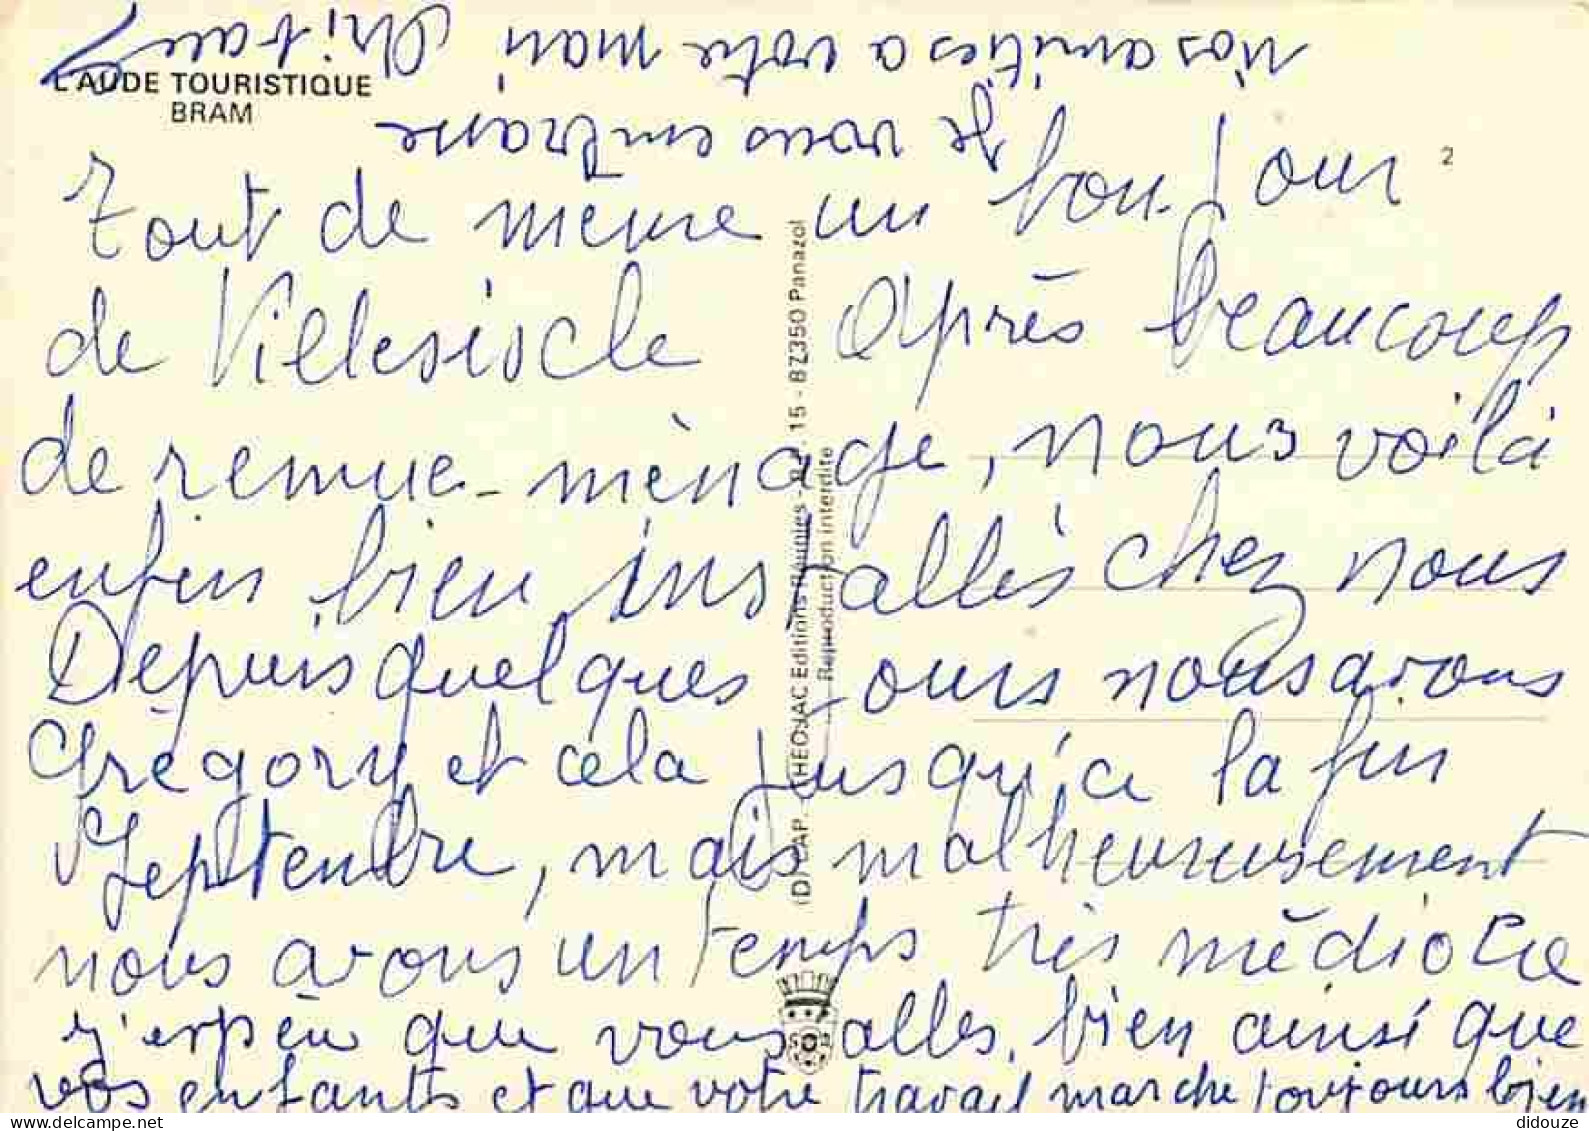 L'AUDE TOURISTIQUE
BRAM
2
Tout de même un bonjour
de Villesiscle Après beaucoup
de remue-mènage, nous voilà
enfin bien installès chez nous
Depuis quelques jours nous avons
Grègory et cela jusqu'à la fin
Septembre, mais malheureusement
nous avons un temps très médiocre
J'espère que vous alles bien ainsi que
vos enfants et que votre travail marche toujours bien
Je vous embrasse
Nos amitiés a votre mari
(D) CAP. - THEOJAC Editions Réunies - 15 - 87350 Panazol
Reproduction interdite
didouze